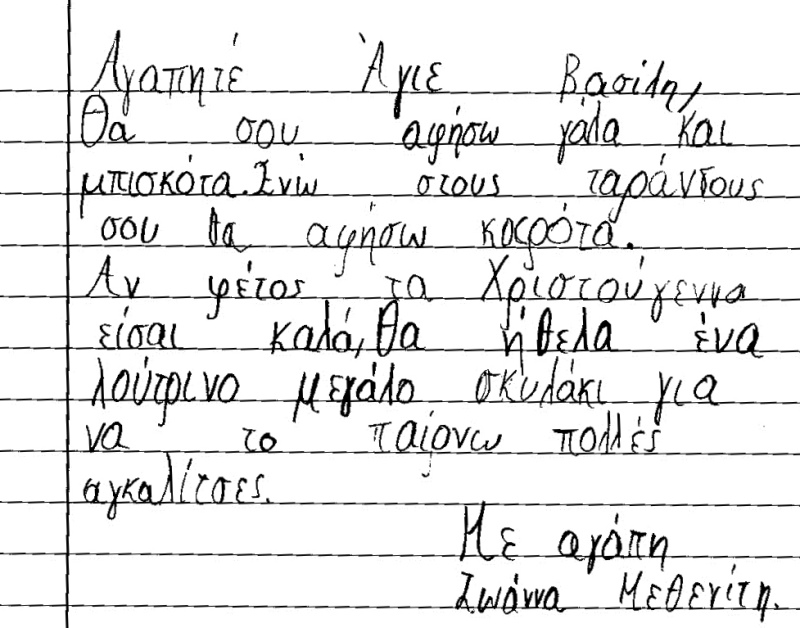 Αγαπητέ Άγιε Βασίλη,
θα σου αφήσω γάλα και
μπισκότα. Ενώ στους ταράνδους
σου θα αφήσω καρότα.
Αν φέτος τα Χριστούγεννα
είσαι καλά, θα ήθελα ένα
λούτρινο μεγάλο σκυλάκι για
να το παίρνω πολλές
αγκαλίτσες.
Με αγάπη
Ιωάννα Μεθενίτη.